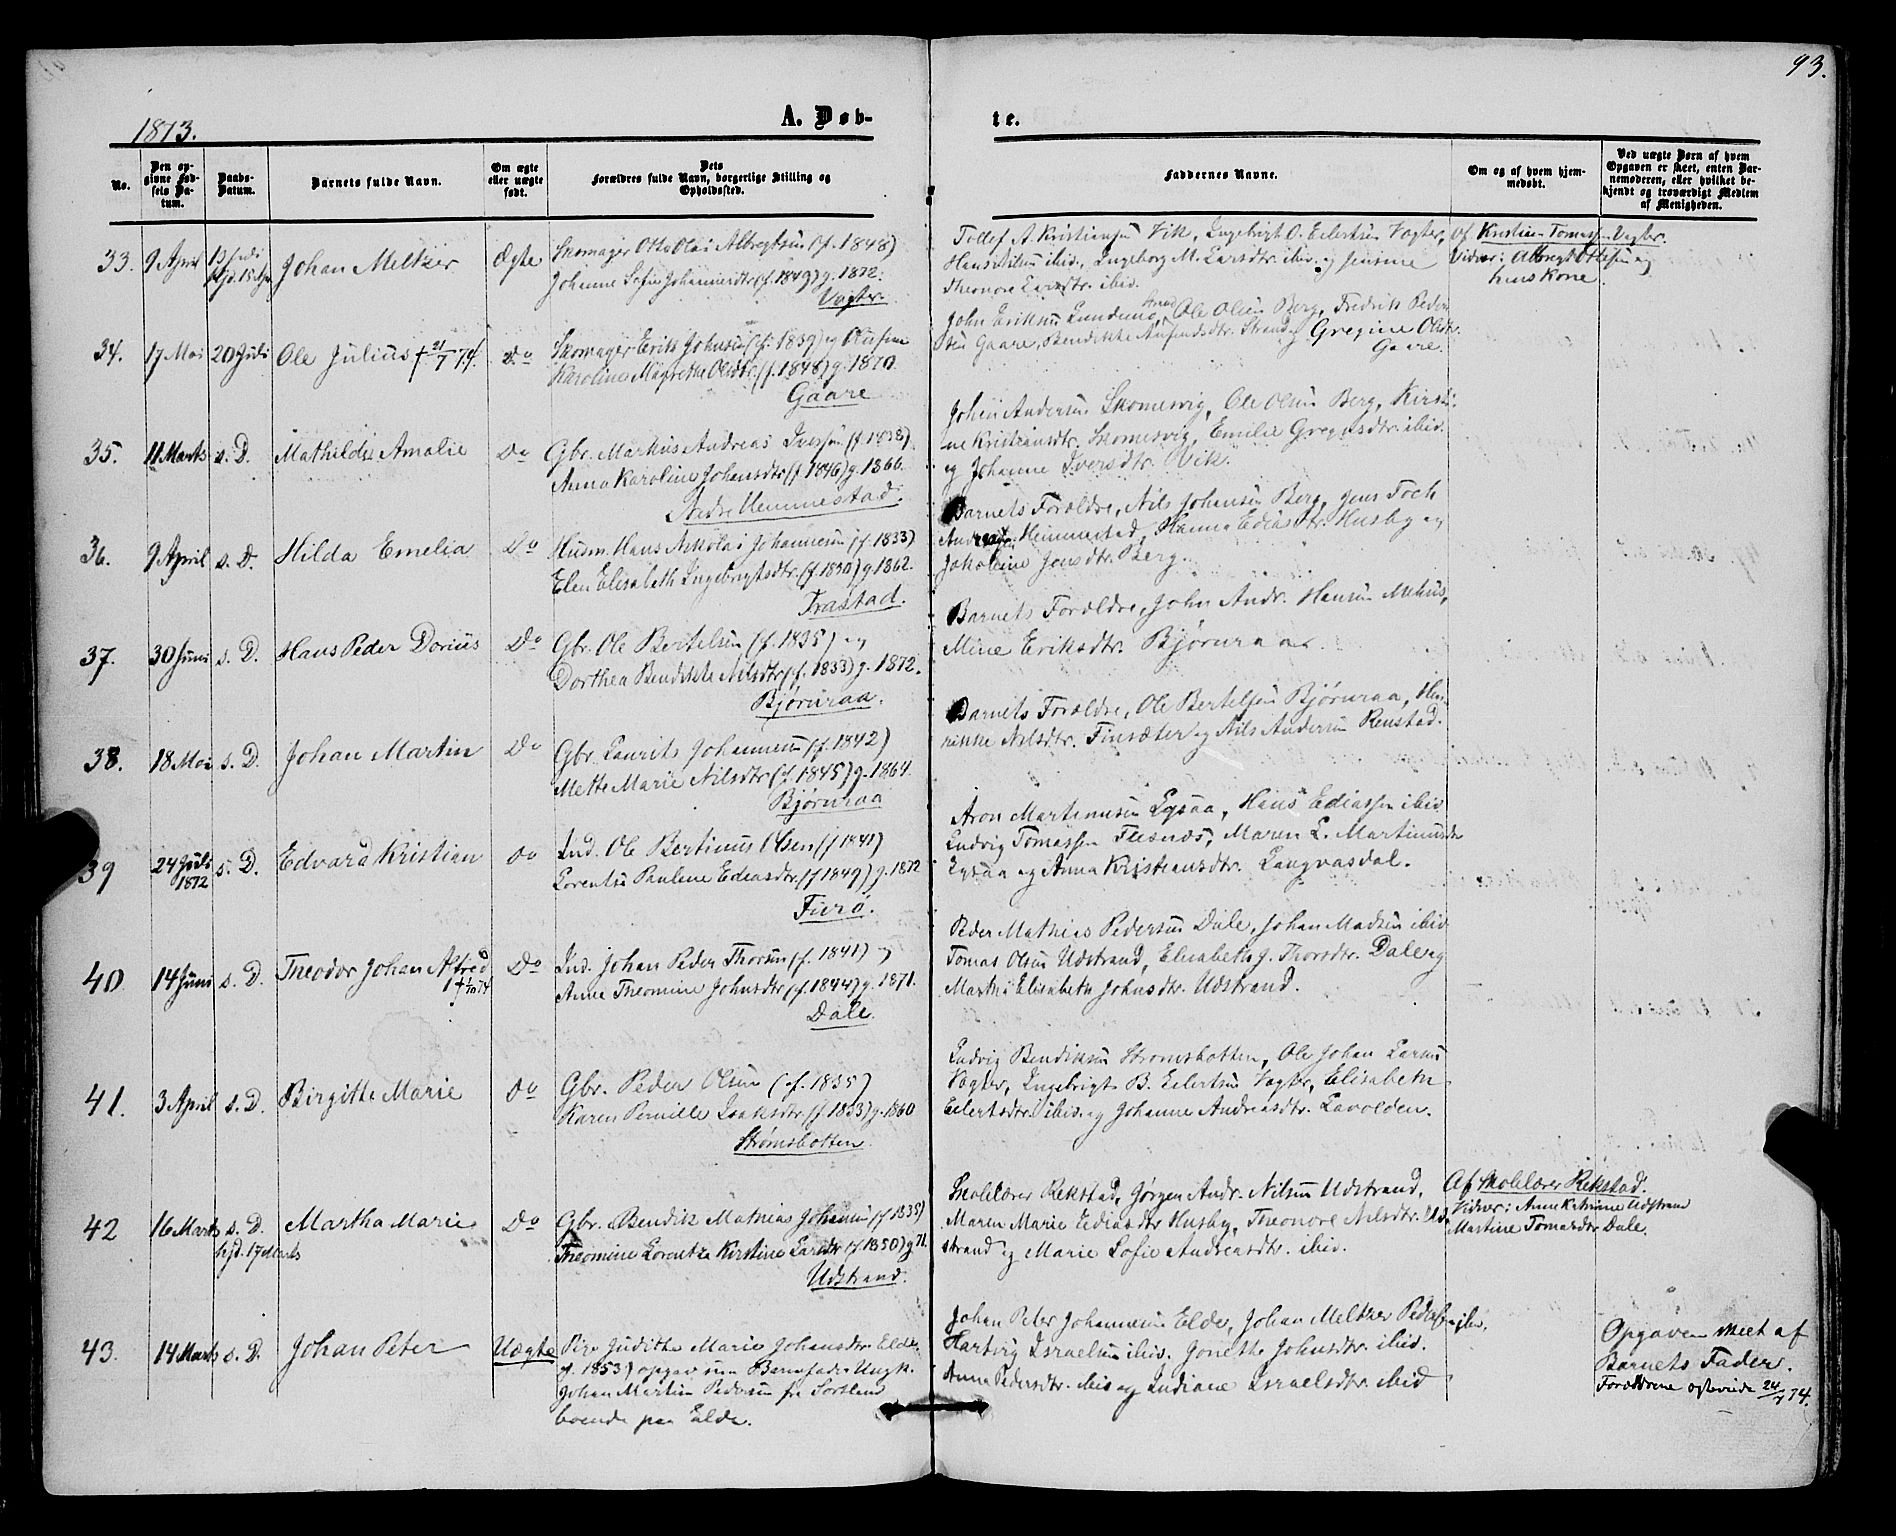 93.
1873.
A. Døb-
te.
No.
Den op-
givne Fød-
sels Da-
tum.
Daabs-
Datum.
Barnets fulde Navn.
Om ægte
eller uægte
født.
Dets
Forældres fulde Navn, borgerlige Stilling og
Opholdssted.
Faddernes Navne.
Om og af hvem hjem-
medøbt.
Ved uægte Børn af hvem
Opgaven er skeet, enten Bar-
nemoderen, eller hvilket be-
kjendt og troværdigt Medlem
af Menigheden.
33. 9 April 13 Juli Johan Meltzer Ægte Skomager Otto Olai Albregtsen (f. 1848)
hjd. 15 Apr. Johanne Sofie Johannesdtr (f. 1849) g. 1872.
Vogter.
Tollef A. Kristiansen Vik, Ingebrigt O. Eilertsen Vogter,
Hans Nilsen ibid., Ingeborg M. Larsdtr. ibid. og Jensine
Theonore Larsdtr. ibid.
Af Kristian Tomass. Vogter.
Vidner: Albregt Ottesen og
hans Kone
34. 17 Mai 20 Juli Ole Julius † 21/7 74. Do Skomager Erik Johnsen (f. 1839) og Olufine
Karoline Magrethe Olsdtr. (f. 1848) g. 1870.
Gaare
John Eriksen Lundenes, Ole Olsen Berg, Fredrik Peder-
sen Gaare, Bendikke Strand og Gregine Olsdtr.
Gaare.
35. 11 Marts s. D. Mathilde Amalie Do Gbr. Markus Andreas Iversen (f. 1838)
Anna Karoline Johansdtr. (f. 1846) g. 1866.
Indre Hemmestad.
Johan Andersen Skomesvig, Ole Olsen Berg, Kirsti-
ne Kristiansdtr. Skomesvig, Emilie Gregersdtr. ibid.
og Johanne Iversdtr. Vik.
36. 9 April s. D. Hilda Emelia Do Husm. Hans Nikolai Johannesen (f. 1833)
Elen Elisabeth Ingebrigtsdtr. (f. 1830) g. 1862.
Trastad.
Barnets Forældre, Nils Johansen Berg, Jens Foch
Andreassen Hemmestad, Hanna Ediasdtr. Husby og
Jakobine Jonsdtr. Berg.
37. 30 Juni s. D. Hans Peder Dorius Do Gbr. Ole Bertelsen (f. 1835) og
Dorthea Bendikte Nilsdtr (f. 1833) g. 1872.
Bjørnraa.
Barnets Forældre, John Andr. Hansen Mehus,
Mine Eriksdtr. Bjørnraa.
38. 18 Mai s. D. Johan Martin Do Gbr. Laurits Johannesen (f. 1842)
Mette Marie Nilsdtr (f. 1845) g. 1864.
Bjørnraa
Barnets Forældre, Ole Bertelsen Bjørnraa, Hen-
rikke Nilsdtr. Finsæter og Nils Andersen Renstad.
39 24 Juli s. D. Edvard Kristian Do Ind. Ole Bertinus Olsen (f 1841)
1872 Lorentse Pauline Ediasdtr. (f 1849) g. 1872
Furø.
Aron Martinusen Lysaa, Hans Ediassen ibid
Ludvig Tomassen Flesnæs, Maren L. Martinusdtr
Lysaa og Anna Kristiansdtr. Langvasdal.
40 14 Juni s. D. Theodor Johan Alfred Do Ind. Johan Peder Thorsen (f. 1841) og
Anne Theomine Johnsdtr (f. 1844) g. 1871.
Dale.
Peder Mathias Pedersen Dale, Johan Madsen ibid
Tomas Olsen Udstrand, Elisabeth J. Thorsdtr. Dale og
Martha Elisabeth Johnsdtr. Udstrand.
41. 3 April s. D. Birgitte Marie Do Gbr. Peder Olsen (f. 1835)
Karen Pernille Isaksdtr. (f 1833) g. 1860
Strømsbotten.
Ludvig Bendiksen Strømsbotten, Ole Johan Larsen
Vogter, Ingebrigt B. Eilertsen Vogter, Elisabeth
Eilertsdtr. ibid. og Johanne Andreasdtr. Lavolden.
42 16 Marts s. D. Martha Marie Do Gbr. Bendik Mathias Johansen (f 1835)
hjd. 17 Marts Theomine Lorentze Kirstine Larsdtr (f 1850) g 71.
Udstrand.
Skolelærer Rekstad, Jørgen Andr. Nilsen Udstrand,
Maren Marie Ediasdtr Husby, Theonore Nilsdtr. Ud-
strand og Marie Sofie Andreasdtr. ibid.
Af Skolelærer Rekstad.
Vidner: Anne Katrine Udstrand
Martine Tomasdtr Dale.
43. 14 Marts s. D. Johan Peter Uægte Pige Judithe Marie Johansdtr Elde
(f. 1853) opgav som Barnefader Ungk.
Johan Martin Pedersen fra Sortland
boende paa Elde.
Johan Peter Johannesen Elde, Johan Meltzer Pedersen ibid.
Hartvig Israelsen ibid. Jonette Johnsdtr. ibid.
Anne Pedersdtr. ibid og Indiane Israelsdtr. ibid
Opgaven skeet af
Barnets Fader.
Forældrene egteviede 24/7 74.